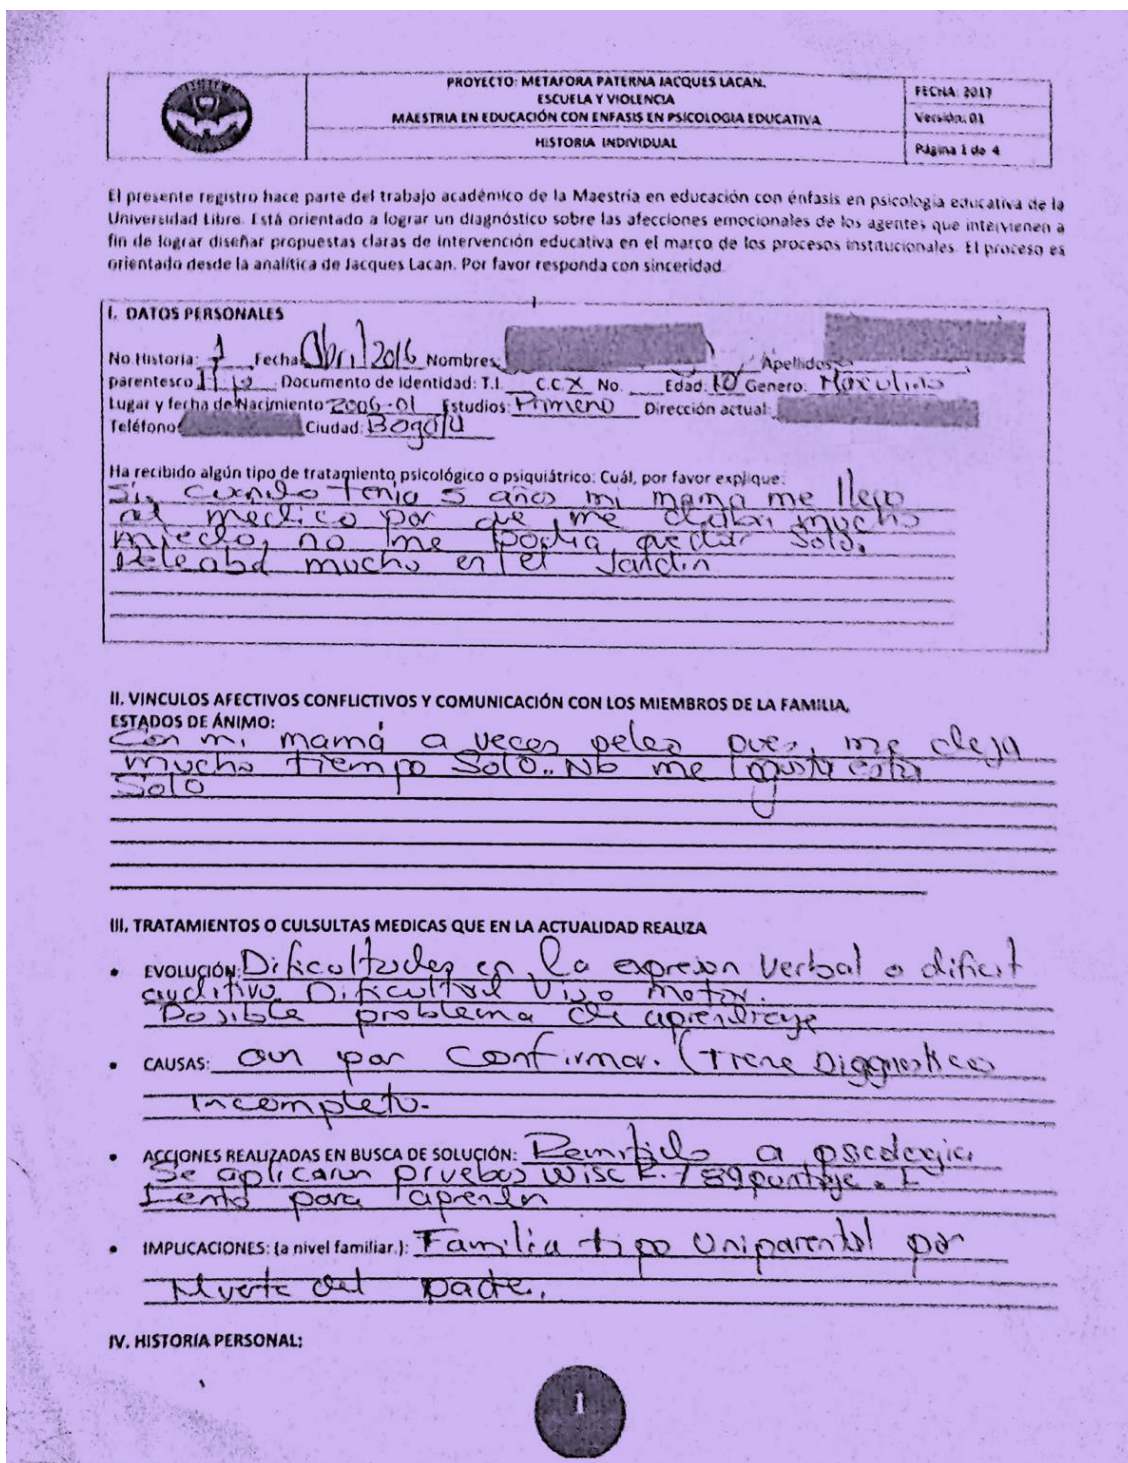 PROYECTO: METAFORA PATERNA JACQUES LACAN.
ESCUELA Y VIOLENCIA
MAESTRIA EN EDUCACIÓN CON ENFASIS EN PSICOLOGIA EDUCATIVA
HISTORIA INDIVIDUAL
FECHA: 2017
Versión: 01
Página 1 de 4
El presente registro hace parte del trabajo académico de la Maestría en educación con énfasis en psicología educativa de la
Universidad Libre. Está orientado a lograr un diagnóstico sobre las afecciones emocionales de los agentes que intervienen a
fin de lograr diseñar propuestas claras de intervención educativa en el marco de los procesos institucionales. El proceso es
orientado desde la analítica de Jacques Lacan. Por favor responda con sinceridad.
I. DATOS PERSONALES
No Historia: 1 Fecha: Abril 2016 Nombres: Apellidos:
parentesco Hijo Documento de Identidad: T.I. C.C X No. Edad: 10 Genero: Masculino
Lugar y fecha de Nacimiento 2006-01 Estudios: Primero Dirección actual:
Teléfono: Ciudad: Bogotá
Ha recibido algún tipo de tratamiento psicológico o psiquiátrico: Cuál, por favor explique:
Si, cuando tenia 5 años mi mama me llevo
al medico por que me daba mucho
miedo, no me podia quedar solo.
Peleaba mucho en el Jardin
II. VINCULOS AFECTIVOS CONFLICTIVOS Y COMUNICACIÓN CON LOS MIEMBROS DE LA FAMILIA,
ESTADOS DE ÁNIMO:
Con mi mamá a veces peleo pues, me deja
mucho tiempo Solo.. No me gusta estar
Solo
III. TRATAMIENTOS O CULSULTAS MEDICAS QUE EN LA ACTUALIDAD REALIZA
• EVOLUCIÓN: Dificultades en la expresion Verbal o dificit
auditivo. Dificultad Viso motor.
Posible problema de aprendizaje
• CAUSAS: aun por Confirmar. (Tiene Diagnostico
Incompleto.
• ACCIONES REALIZADAS EN BUSCA DE SOLUCIÓN: Remitido a psicologia
Se aplicaron pruebas WISC R. / 89 puntaje.
Lento para aprender
• IMPLICACIONES: (a nivel familiar.): Familia tipo Uniparental por
Muerte del padre.
IV. HISTORIA PERSONAL:
1